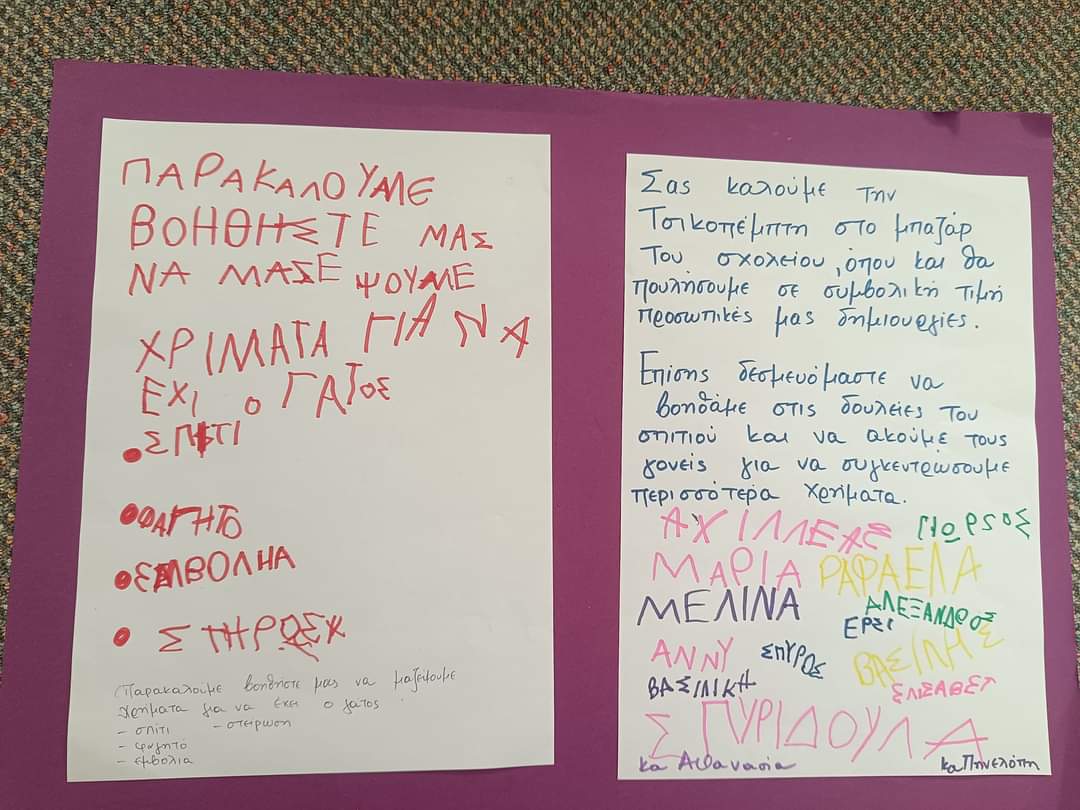 ΠΑΡΑΚΑΛΟΥΜΕ
ΒΟΗΘΗΣΤΕ ΜΑΣ
ΝΑ ΜΑΣΕΨΟΥΜΕ
ΧΡΙΜΑΤΑ ΓΙΑ ΝΑ
ΕΧΙ Ο ΓΑΤΟΣ
• ΣΠΙΤΙ
• ΦΑΓΗΤΟ
• ΕΜΒΟΛΗΑ
(Παρακαλούμε βοηθήστε μας να μαζέψουμε
χρήματα για να έχει ο γάτος
- σπίτι - στείρωση
- φαγητό
- εμβόλια
Σας καλούμε την
Τσικοπέμπτη στο μπαζάρ
του σχολείου, όπου και θα
πουλήσουμε σε συμβολική τιμή
προσωπικές μας δημιουργίες.
Επίσης δεσμευόμαστε να
βοηθάμε στις δουλειές του
σπιτιού και να ακούμε τους
γονείς για να συγκεντρώσουμε
περισσότερα χρήματα.
ΑΧΙΛΛΕΑΣ
ΜΑΡΙΑ ΡΑΦΑΕΛΑ
ΜΕΛΙΝΑ ΑΛΕΞΑΝΔΡΟΣ
ΕΡΣΙ
ΑΝΝΥ ΣΠΥΡΟΣ ΒΑΣΙΛΗΣ
ΒΑΣΙΛΙΚΗ ΕΛΙΣΑΒΕΤ
ΣΠΥΡΙΔΟΥΛΑ
κα Αθανασία κα Πηνελόπη